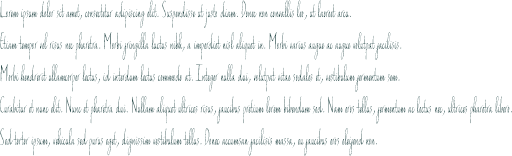 Lorem ipsum dolor sit amet, consectetur adipiscing elit. Suspendisse at justo diam. Donec non convallis leo, ut laoreet arcu.
Etiam tempor vel risus nec pharetra. Morbi fringilla luctus nibh, a imperdiet nisl aliquet in. Morbi varius augue ac augue volutpat facilisis.
Morbi hendrerit ullamcorper luctus, id interdum lectus commodo at. Integer nulla dui, volutpat vitae sodales et, vestibulum fermentum sem.
Curabitur et nunc elit. Nunc et pharetra dui. Nullam aliquet ultrices risus, faucibus pretium lorem bibendum sed. Nam eros tellus, fermentum ac lectus nec, ultrices pharetra libero.
Sed tortor ipsum, vehicula sed purus eget, dignissim vestibulum tellus. Donec accumsan facilisis massa, eu faucibus eros eleifend non.